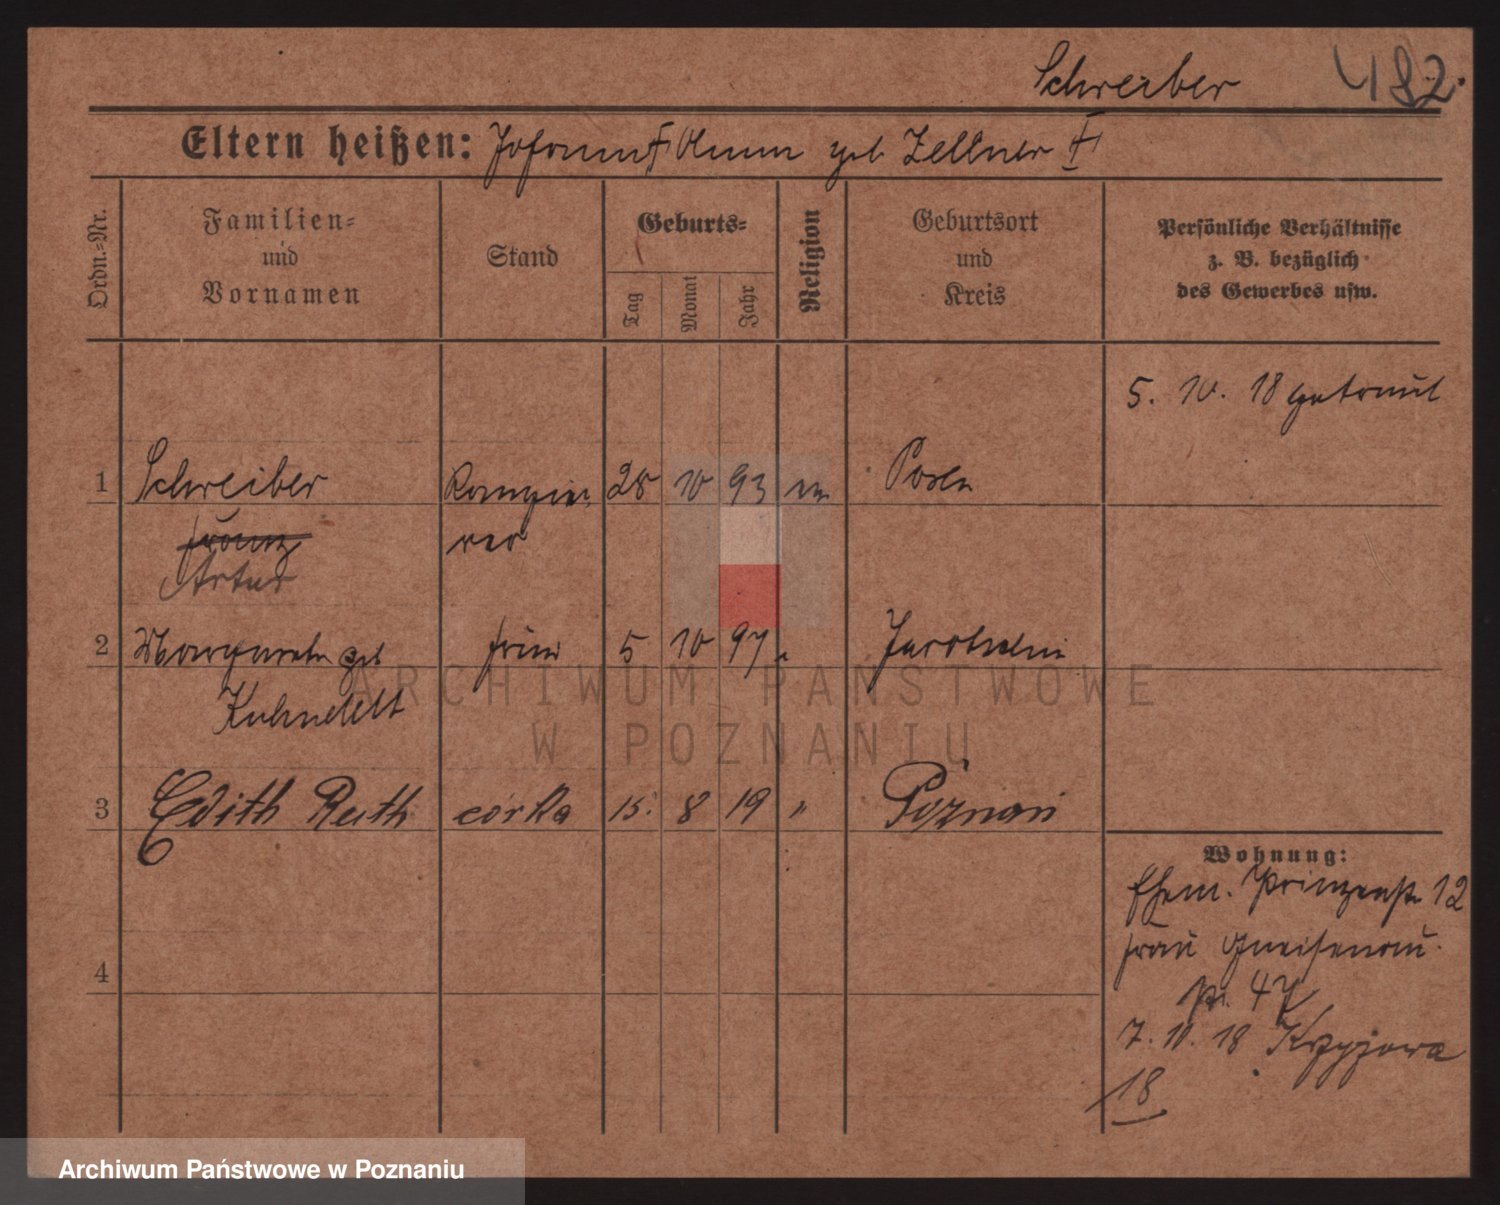 Schreiber 482.
Eltern heißen: Johann † Anna geb Zellner †
Ordn.=Nr.
Familien=
und
Vornamen
Stand
Geburts=
Tag
Monat
Jahr
Religion
Geburtsort
und
Kreis
Persönliche Verhältnisse
z. B. bezüglich
des Gewerbes usw.
5. 10. 18 getraut
1 Schreiber Rangie= 28 10 93 Posen
Franz rer
Artur
2 Margarete geb Frau 5 10 97 " Jarotschin
Kuhneldt
3 Edith Ruth córka 15. 8 19 " Poznań
4
Wohnung:
Ehem. Prinzenstr 12
Frau Gneisenau
str. 47
7. 10. 18 Krzyżowa
18
ARCHIWUM PAŃSTWOWE
W POZNANIU
Archiwum Państwowe w Poznaniu